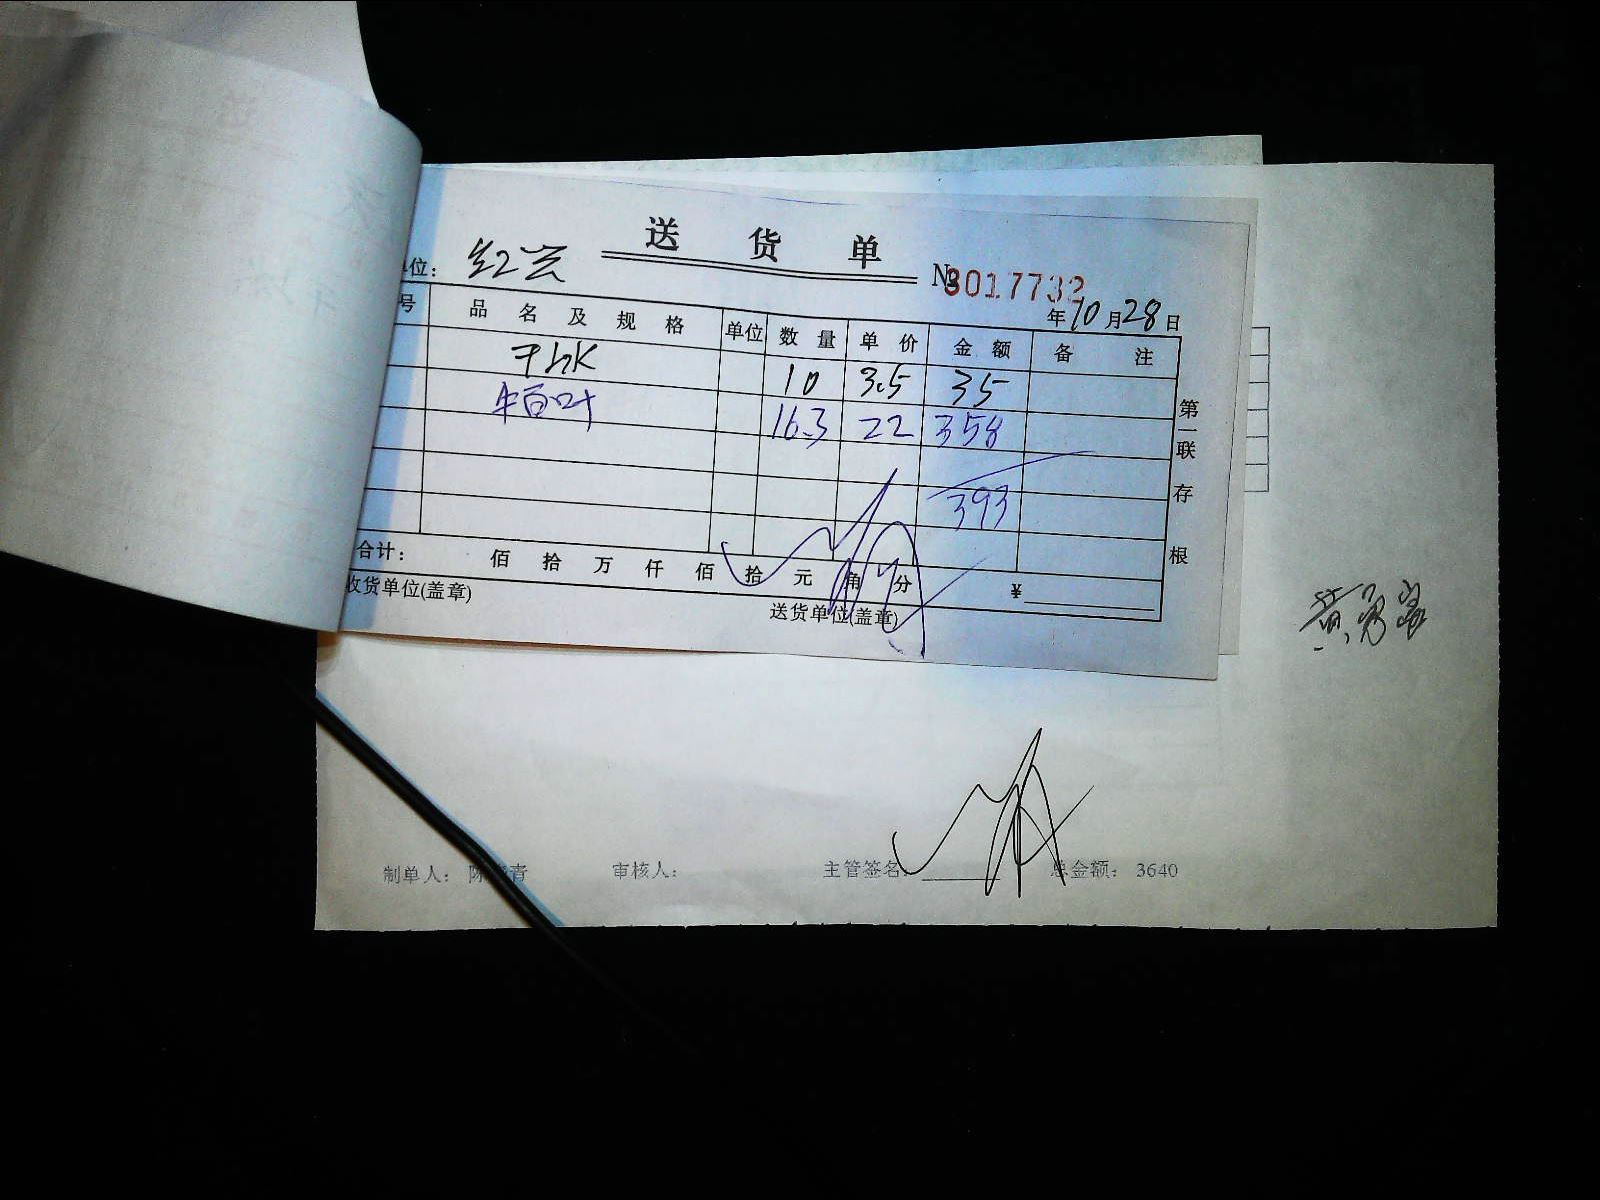 送 货 单
位: 红兴
№3017732
年10月28日
号 品名及规格 单位 数量 单价 金额 备注
10 3.5 35
牛百叶 16.3 22 358
393
合计: 佰 拾 万 仟 佰 拾 元 角 分 ¥
收货单位(盖章) 送货单位(盖章)
第一联 存根
制单人: 陈 青 审核人: 主管签名: 总金额: 3640